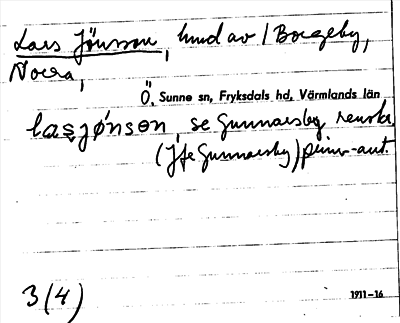 Lars Jönsson, hmd av 1 Borgeby,
Norra,
Ö. Sunne sn, Fryksdals hd, Värmlands län
lasjønsøn, se Gunnarsby renskr.
(Jfr Gunnarsby) prim-ant.
3(4)
1911–16